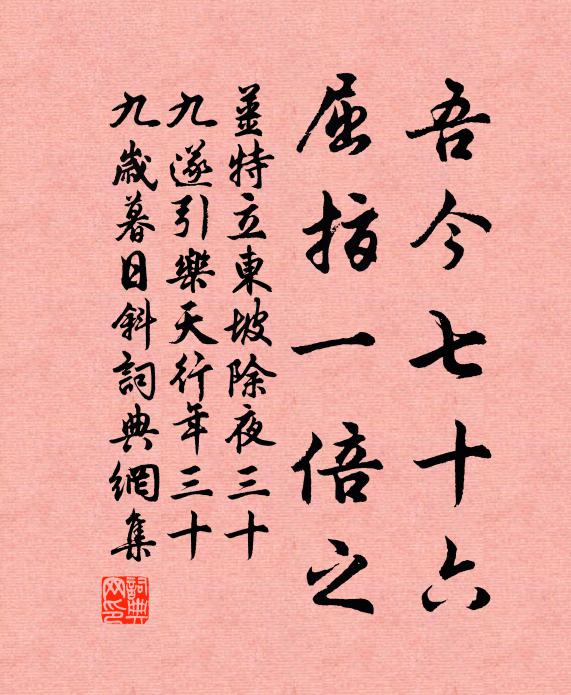 吾今七十六
屈指一倍之
姜特立東坡除夜三十
九遂引樂天行年三十
九歲暮日斜詞典網集
詞典
网印